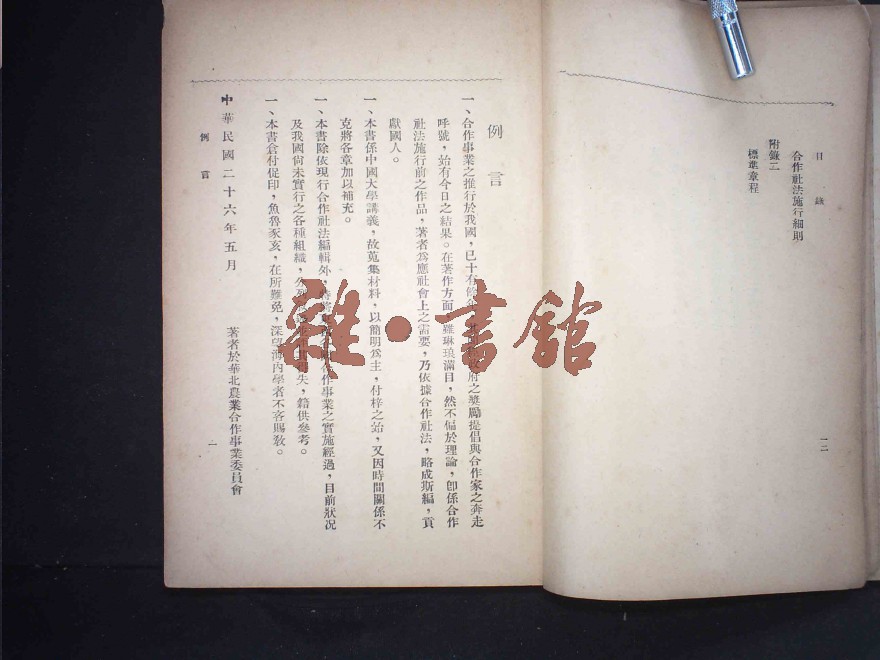 目錄
合作社法施行細則
附錄二
標準章程
一二
例言
一、合作事業之推行於我國,已十有餘年,政府之獎勵提倡與合作家之奔走
呼號,始有今日之結果。在著作方面,雖琳琅滿目,然不偏於理論,卽係合作
社法施行前之作品,著者爲應社會上之需要,乃依據合作社法,略成斯編,貢
獻國人。
一、本書係中國大學講義,故蒐集材料,以簡明爲主,付梓之始,又因時間關係不
克將各章加以補充。
一、本書除依現行合作社法編輯外,特將作事業之實施經過,目前狀况
及我國尙未實行之各種組織,分列失,藉供參考。
一、本書倉付促印,魚魯豕亥,在所難免,深望海內學者不吝賜敎。
中華民國二十六年五月
著者於華北農業合作事業委員會
例言
一
雜·書館